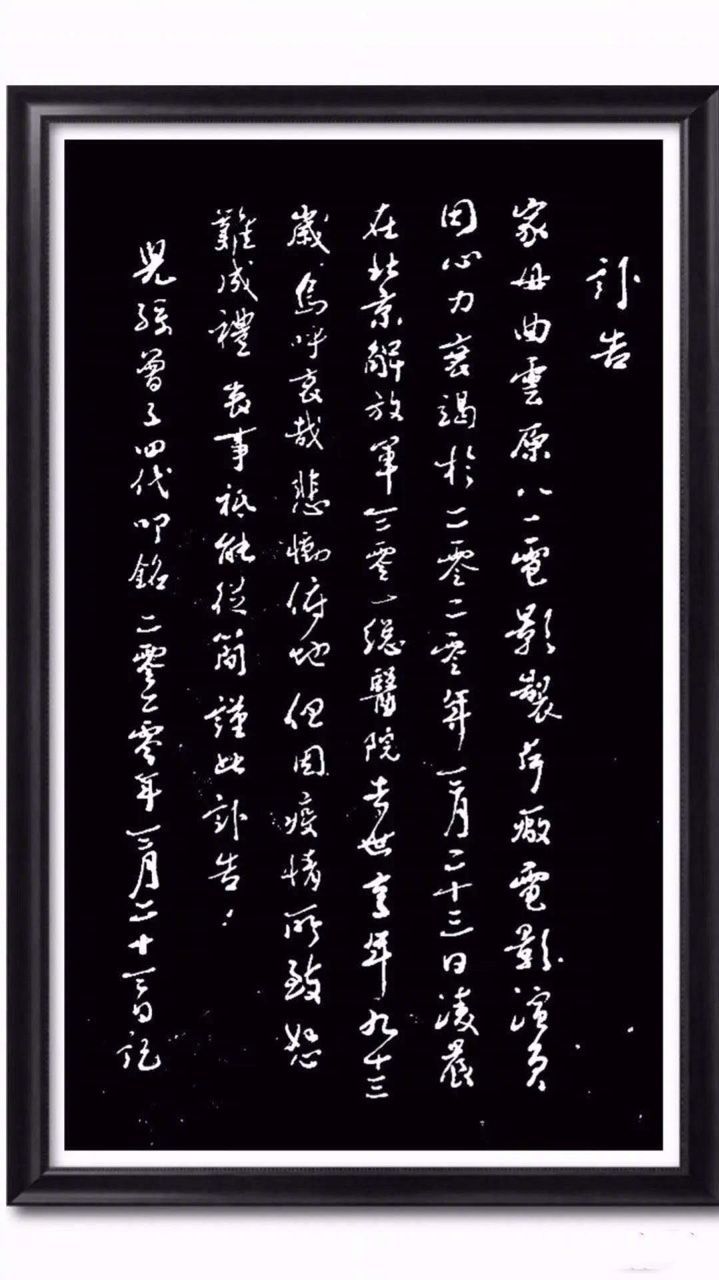 訃告
家母曲雲原八一電影製片廠電影演員
因心力衰竭於二零二零年三月二十三日凌晨
在北京解放軍三零一總醫院去世享年九十三
歲,烏呼哀哉悲慟俯地但因疫情所致恕
難成禮喪事祗能從簡謹此訃告!
兒孫曾子四代叩銘二零二零年三月二十三日記